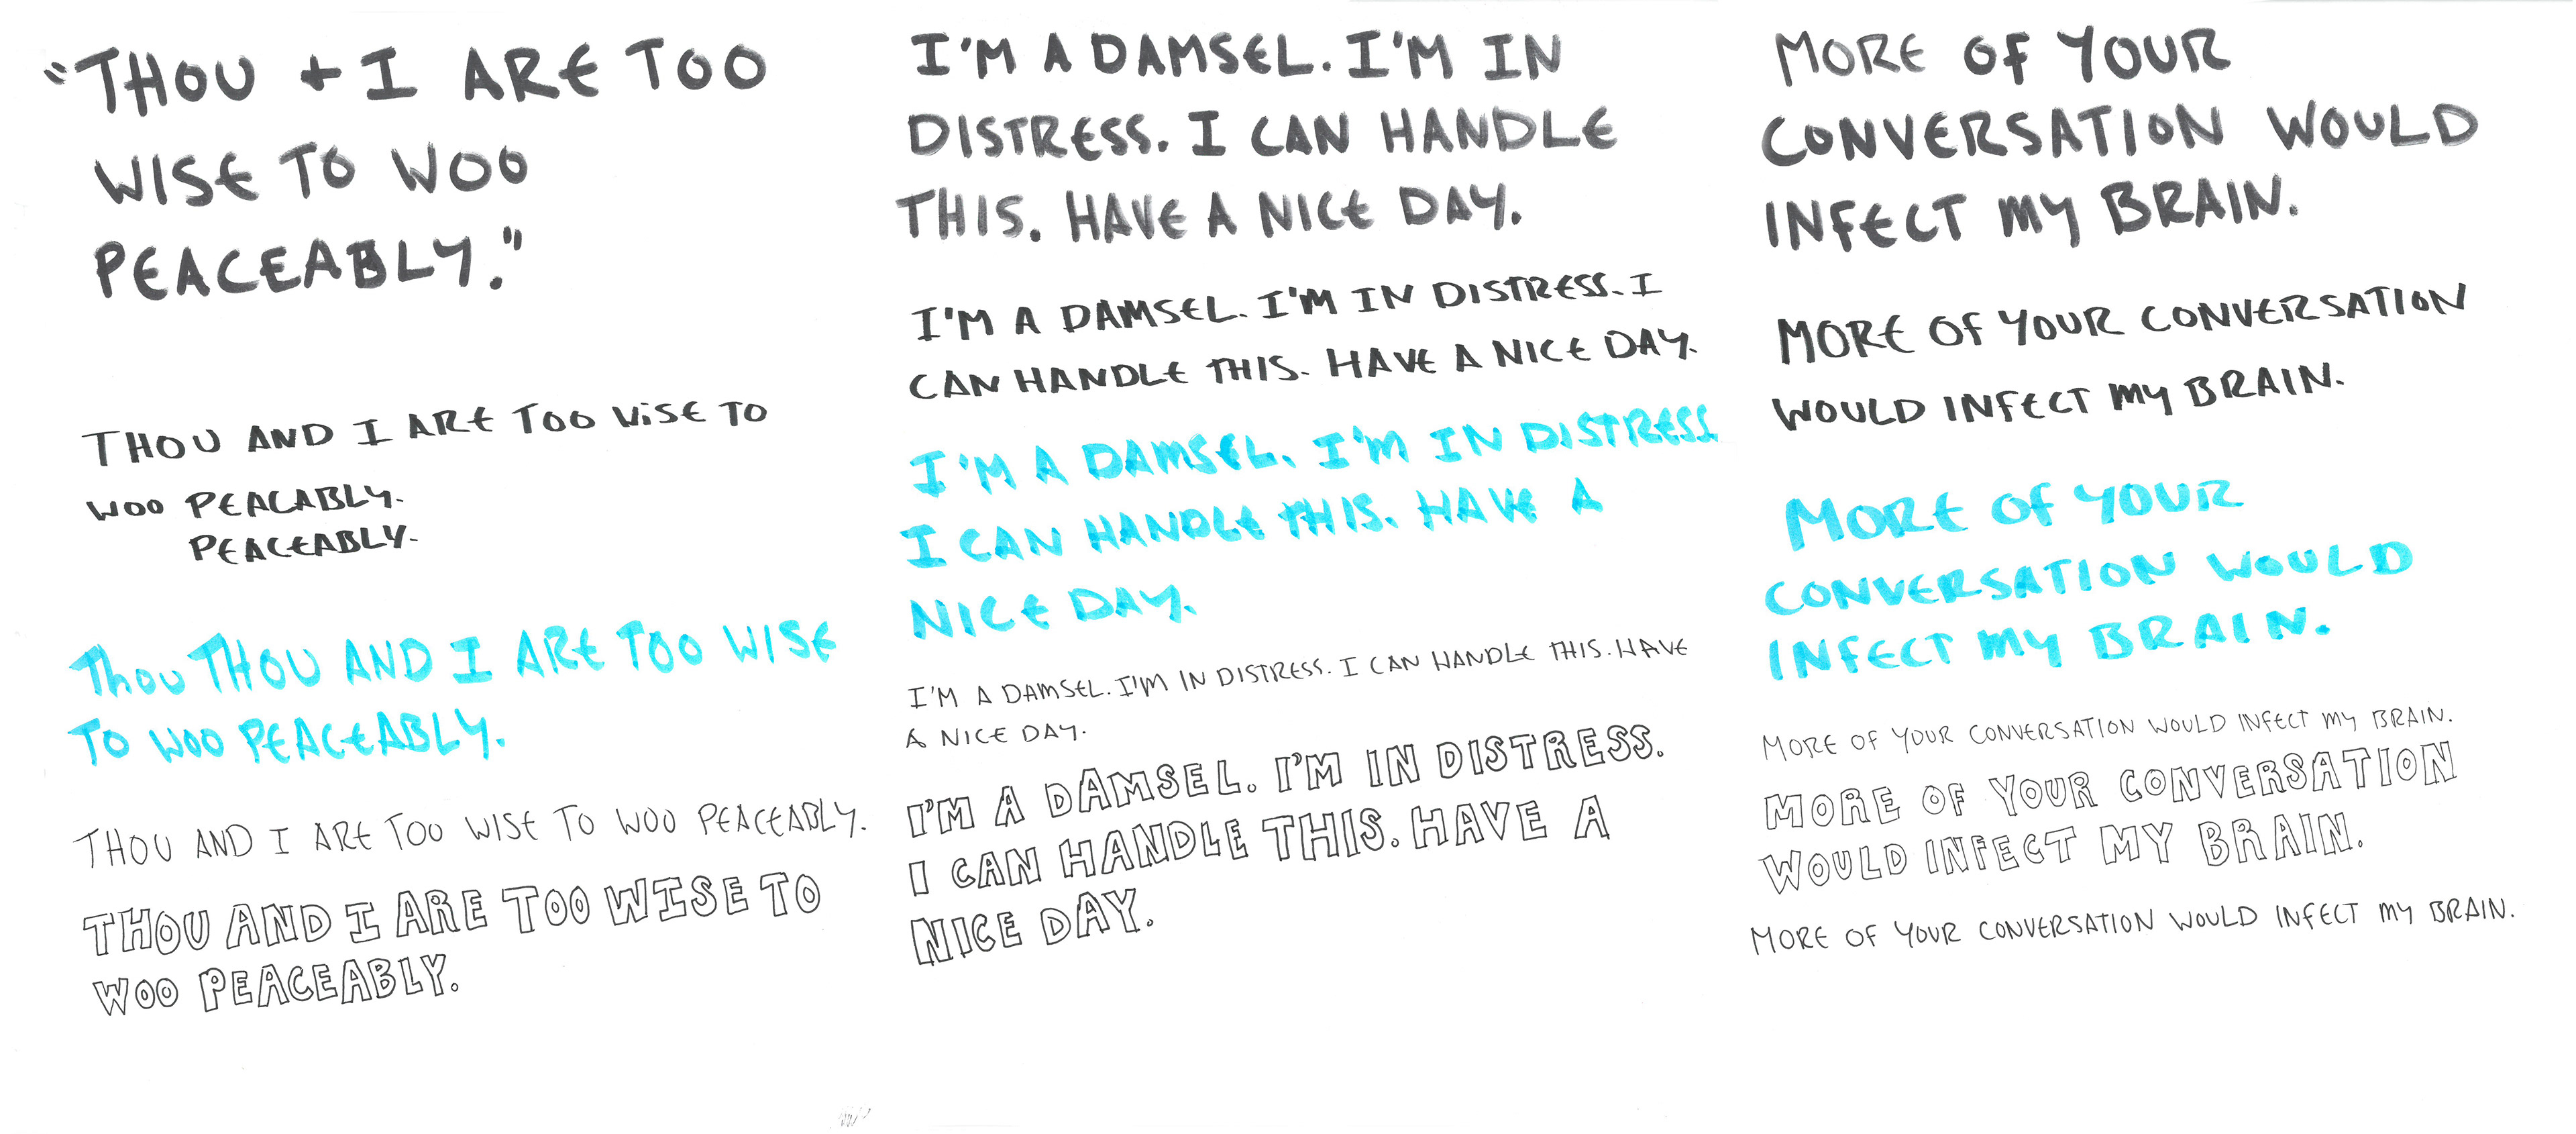 "THOU + I ARE TOO
WISE TO WOO
PEACEABLY."
THOU AND I ARE TOO WISE TO
WOO PEACABLY.
PEACEABLY.
Thou THOU AND I ARE TOO WISE
TO WOO PEACEABLY.
THOU AND I ARE TOO WISE TO WOO PEACEABLY.
THOU AND I ARE TOO WISE TO
WOO PEACEABLY.
I'M A DAMSEL. I'M IN
DISTRESS. I CAN HANDLE
THIS. HAVE A NICE DAY.
I'M A DAMSEL. I'M IN DISTRESS. I
CAN HANDLE THIS. HAVE A NICE DAY.
I'M A DAMSEL. I'M IN DISTRESS.
I CAN HANDLE THIS. HAVE A
NICE DAY.
I'M A DAMSEL. I'M IN DISTRESS. I CAN HANDLE THIS. HAVE
A NICE DAY.
I'M A DAMSEL. I'M IN DISTRESS.
I CAN HANDLE THIS. HAVE A
NICE DAY.
MORE OF YOUR
CONVERSATION WOULD
INFECT MY BRAIN.
MORE OF YOUR CONVERSATION
WOULD INFECT MY BRAIN.
MORE OF YOUR
CONVERSATION WOULD
INFECT MY BRAIN.
MORE OF YOUR CONVERSATION WOULD INFECT MY BRAIN.
MORE OF YOUR CONVERSATION
WOULD INFECT MY BRAIN.
MORE OF YOUR CONVERSATION WOULD INFECT MY BRAIN.